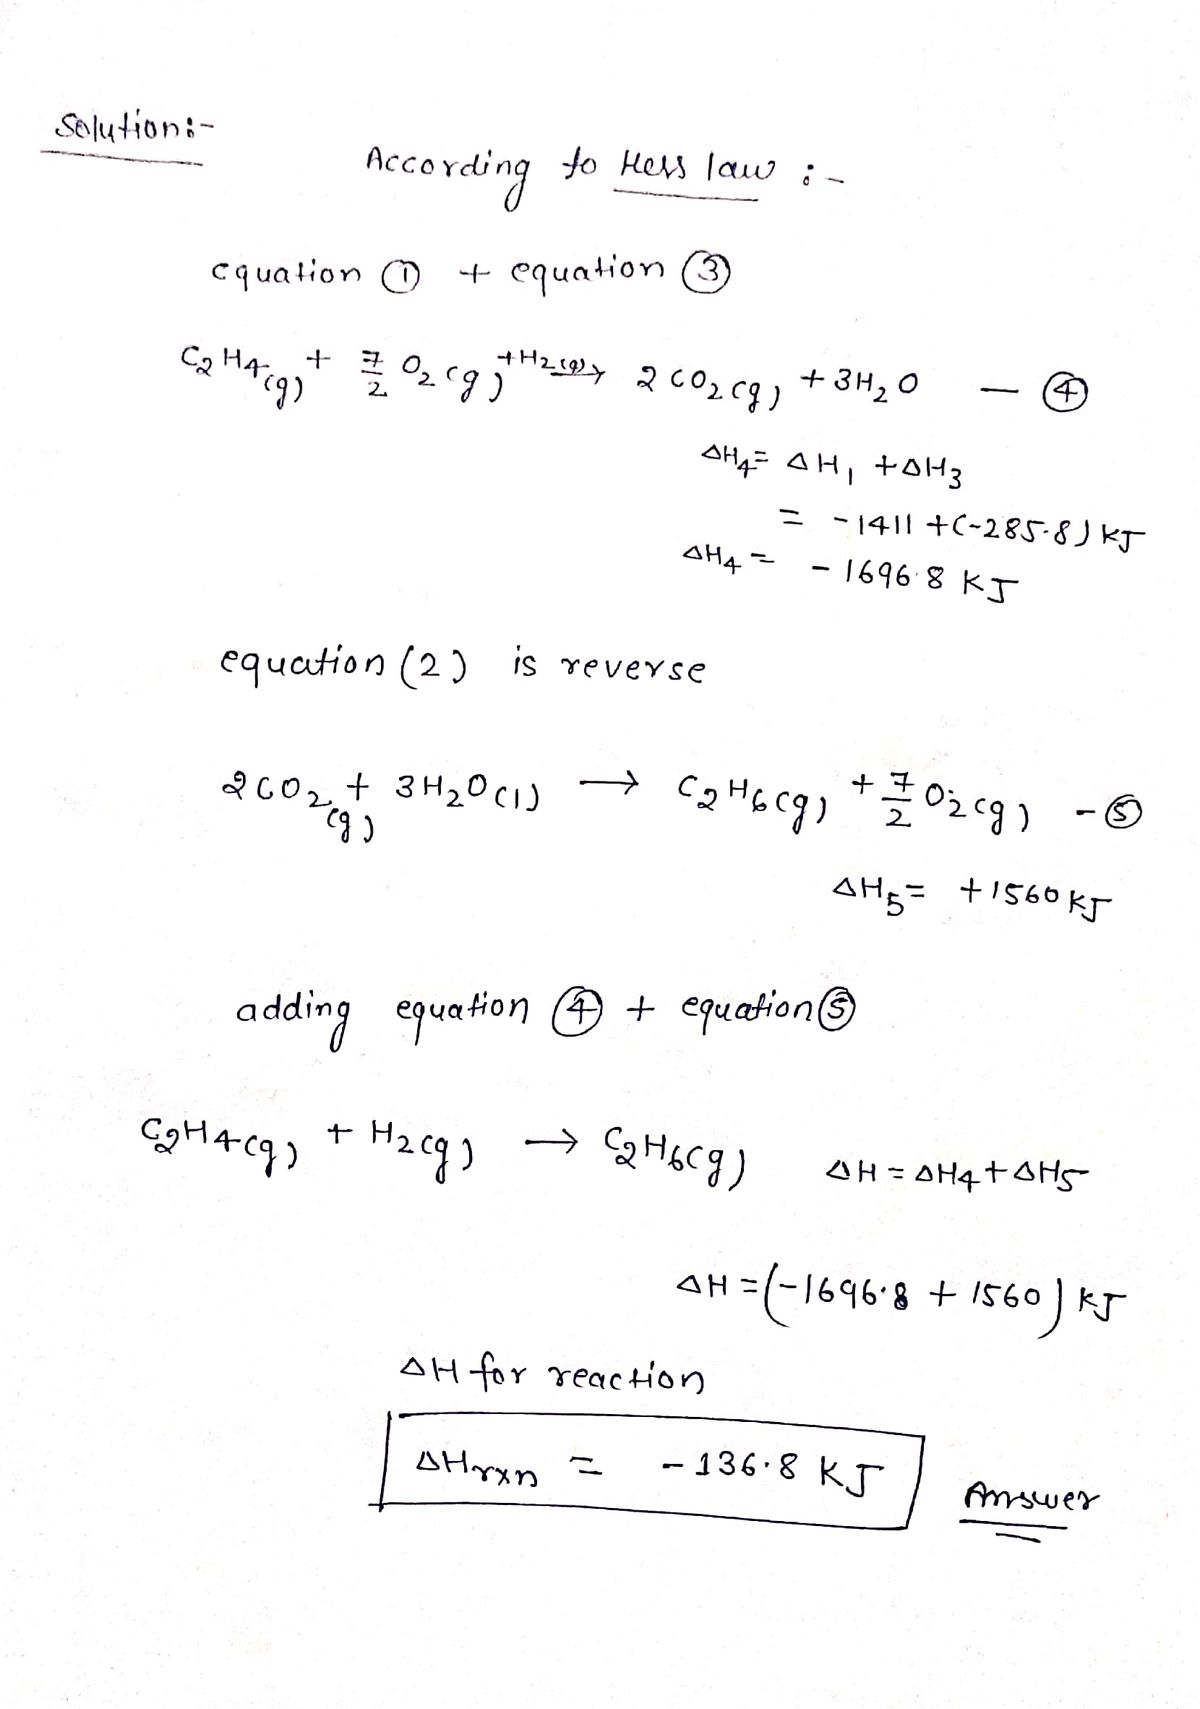 Solution:-
According to Hess law :-
equation ① + equation ③
C2H4(g) + 7/2 O2(g) + H2(g) → 2CO2(g) + 3H2O — ④
ΔH4 = ΔH1 + ΔH3
= -1411 + (-285.8) KJ
ΔH4 = -1696.8 KJ
equation (2) is reverse
2CO2(g) + 3H2O(l) → C2H6(g) + 7/2 O2(g) - ⑤
ΔH5 = +1560 KJ
adding equation ④ + equation ⑤
C2H4(g) + H2(g) → C2H6(g) ΔH = ΔH4 + ΔH5
ΔH = (-1696.8 + 1560) KJ
ΔH for reaction
ΔHrxn = -136.8 KJ Answer